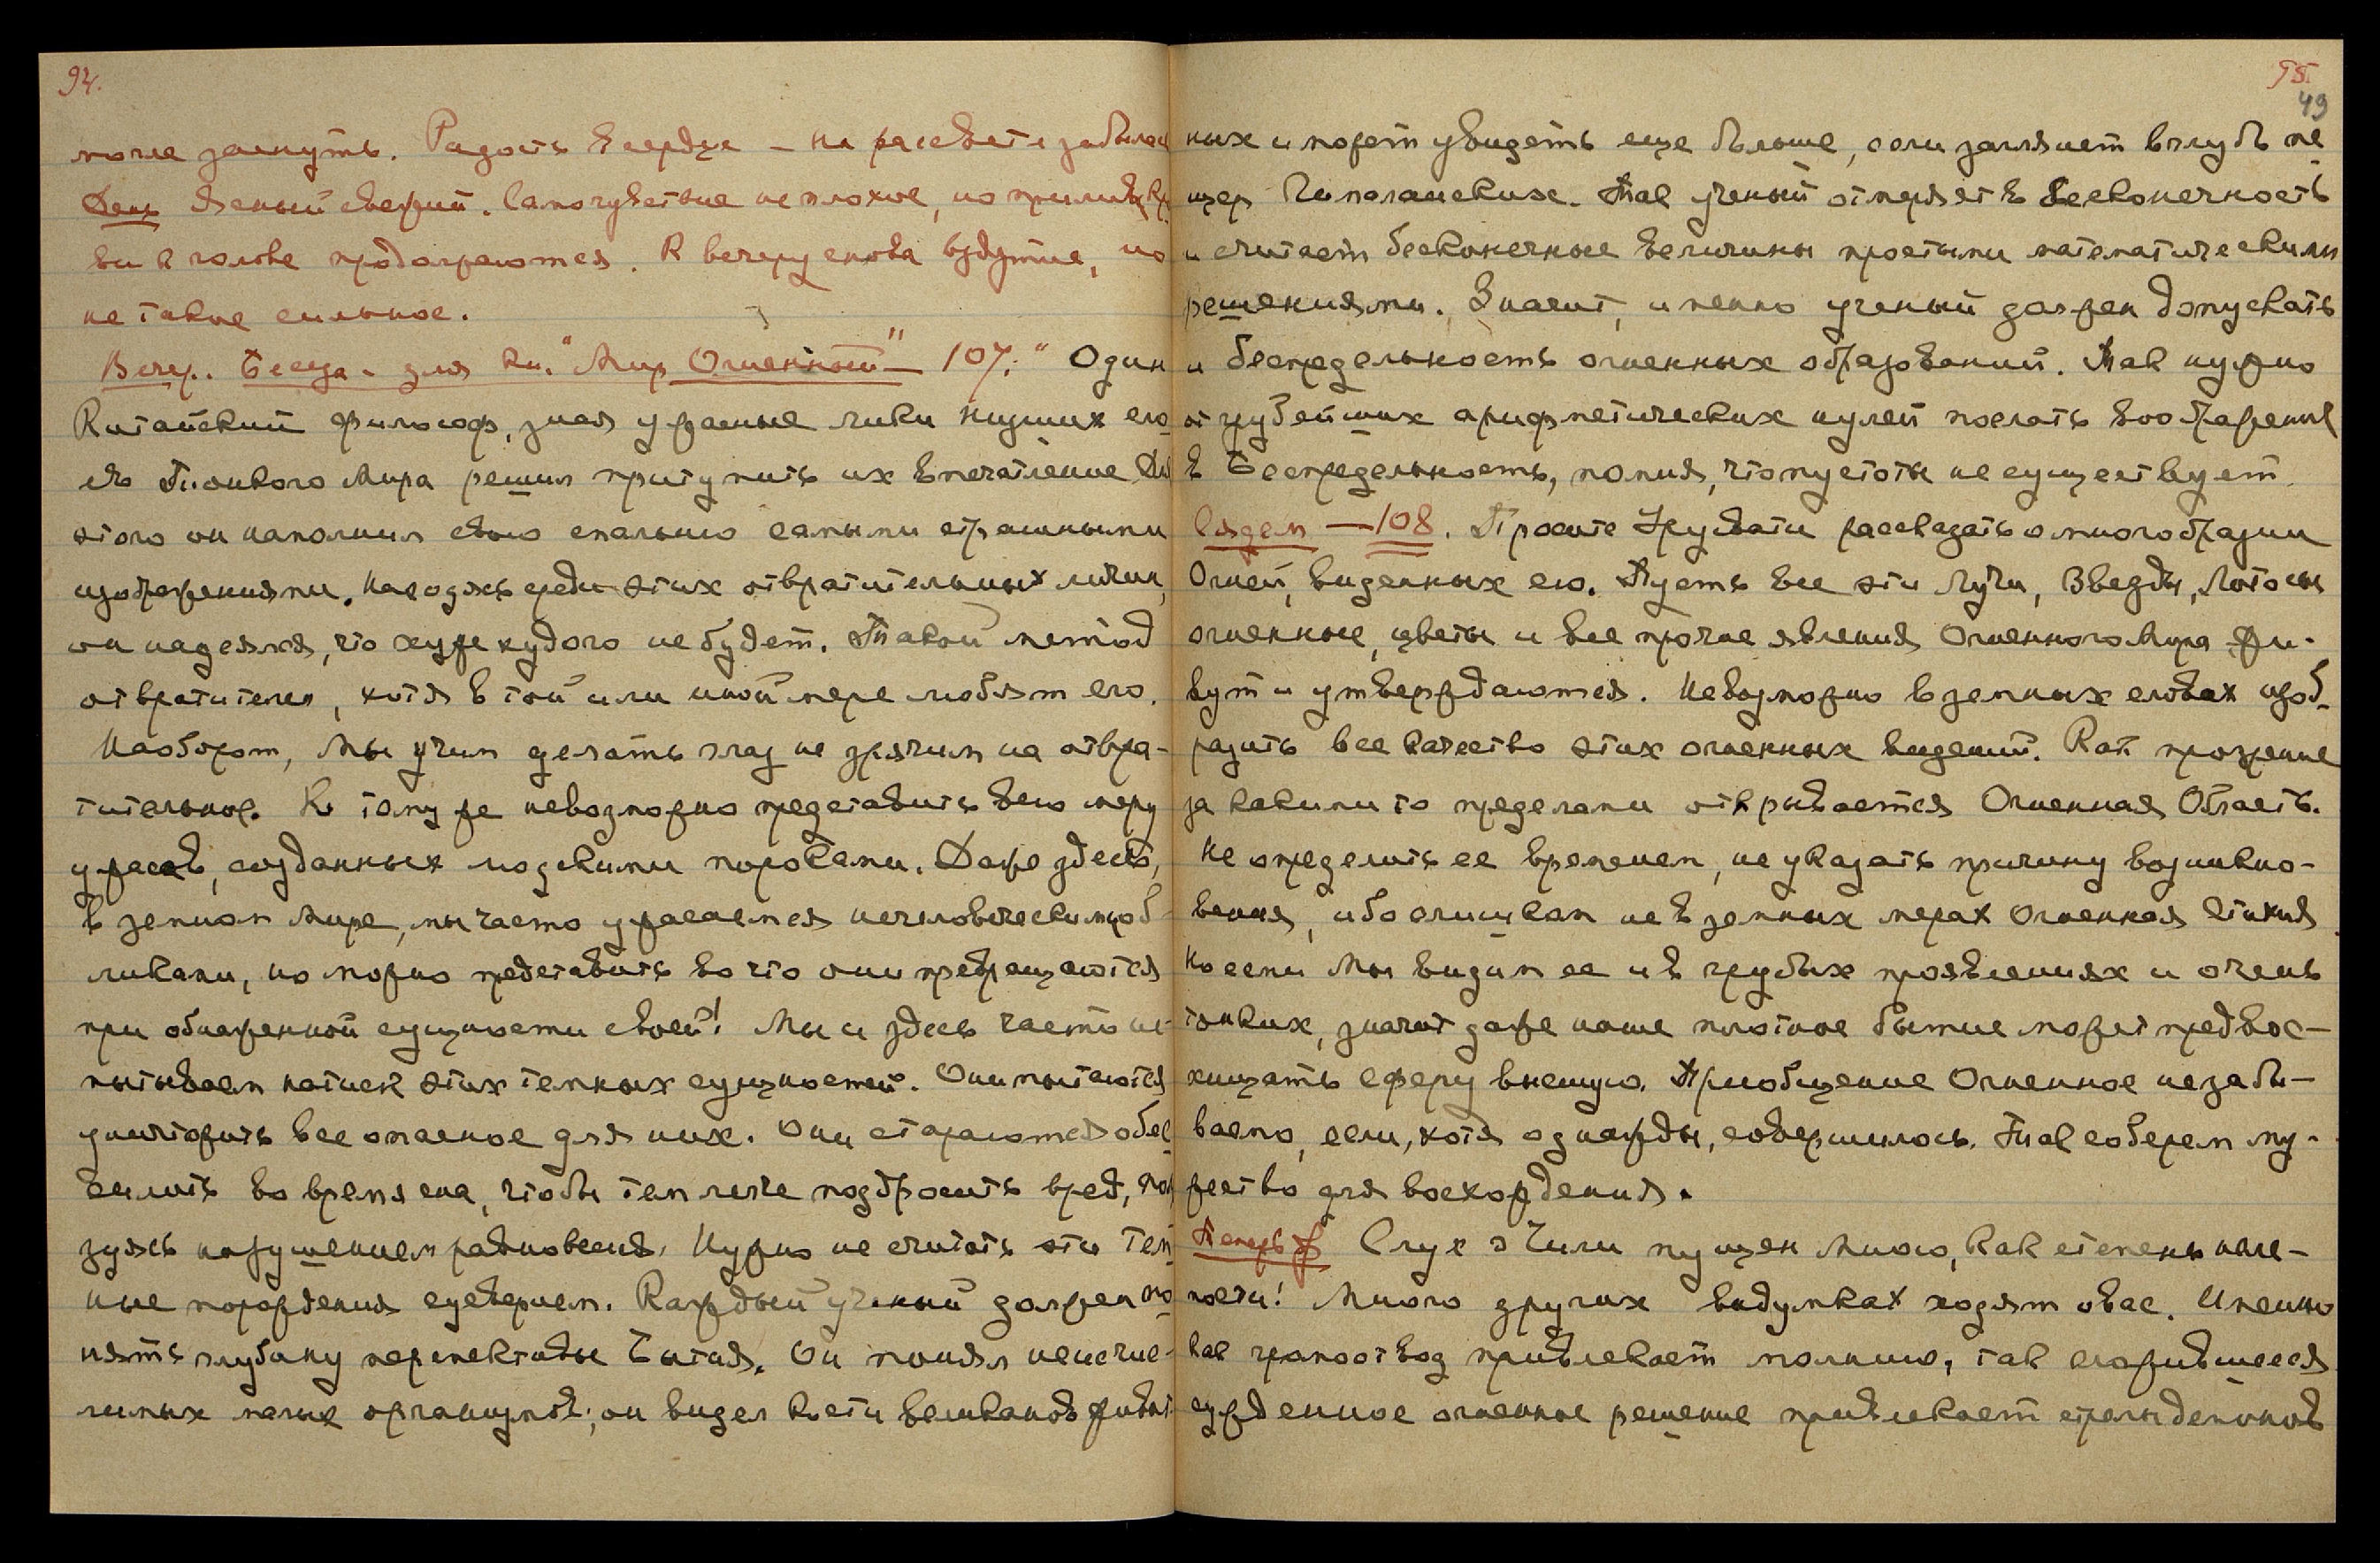 94.
могла заснуть. Радость в сердце – на рассвете забылась
День Ясный свежий. Самочувствие не плохое, но приливы кро
ви к голове продолжаются. К вечеру снова вздутие, но
не такое сильное.
Вечер. Беседа – для кн. "Мир Огненный" – 107. "Один
Китайский философ, зная ужасные лики низших сло
ев Тонкого Мира решил притупить их впечатление. Для
этого он наполнил свою спальню самыми страшными
изображениями. Находясь среди этих отвратительных личин,
он надеялся, что хуже худого не будет. Такой метод
отвратителен, хотя в той или иной мере любят его.
Наоборот, Мы учим делать глаз не зрячим на отвра-
тительное. К тому же невозможно представить всю меру
ужасов, созданных людскими пороками. Даже здесь,
в земном Мире, мы часто ужасаемся нечеловеческим об-
ликам, но можно представить во что они превращаются
при обнаженной сущности своей! Мы и здесь часто ис-
пытываем натиск этих темных сущностей. Они пытаются
уничтожить все опасное для них. Они стараются обес
силить во время сна, чтобы тем легче подбросить вред, поль
зуясь нарушением равновесия. Нужно не считать эти тем
ные порождения суеверием. Каждый ученый должен по
нять глубину перспективы Бытия. Он понял неисчис-
лимых малых организмов; он видел кости великанов живот-
95.
49
ных и может увидеть еще больше, если заглянет вглубь пе
щер Гималайских. Так ученый отмеряет в Бесконечность
и считает бесконечные величины простыми математическими
решениями. Значит, именно ученый должен допускать
и беспредельность огненных образований. Так нужно
от грубейших арифметических нулей послать воображение
в Беспредельность, помня, что пустоты не существует.
Рядом – 108. Просите Урусвати рассказать о многообразии
Огней, виденных ею. Пусть все эти Лучи, Звезды, Лотосы
огненные, цветы и все прочие явления Огненного Мира жи-
вут и утверждаются. Невозможно в земных словах изоб
разить все качество этих огненных видений. Как прозрение
за какими то пределами открывается Огненная Область.
Не определить ее временем, не указать причину возникно-
вения, ибо слишком не в земных мерах Огненная Стихия.
Но если Мы видим ее и в грубых проявлениях и очень
тонких, значит даже наше плотное бытие может предвос-
хищать сферу высшую. Приобщение Огненное незабы-
ваемо, если, хотя однажды, совершилось. Так соберем му-
жество для восхождения.
Теперь Слух о Чили пущен Мною, как степень неле-
пости! Много других выдумках ходят о вас. Именно
как громоотвод привлекает молнию, так сложившееся
сужденное огненное решение привлекает стрелы демонов